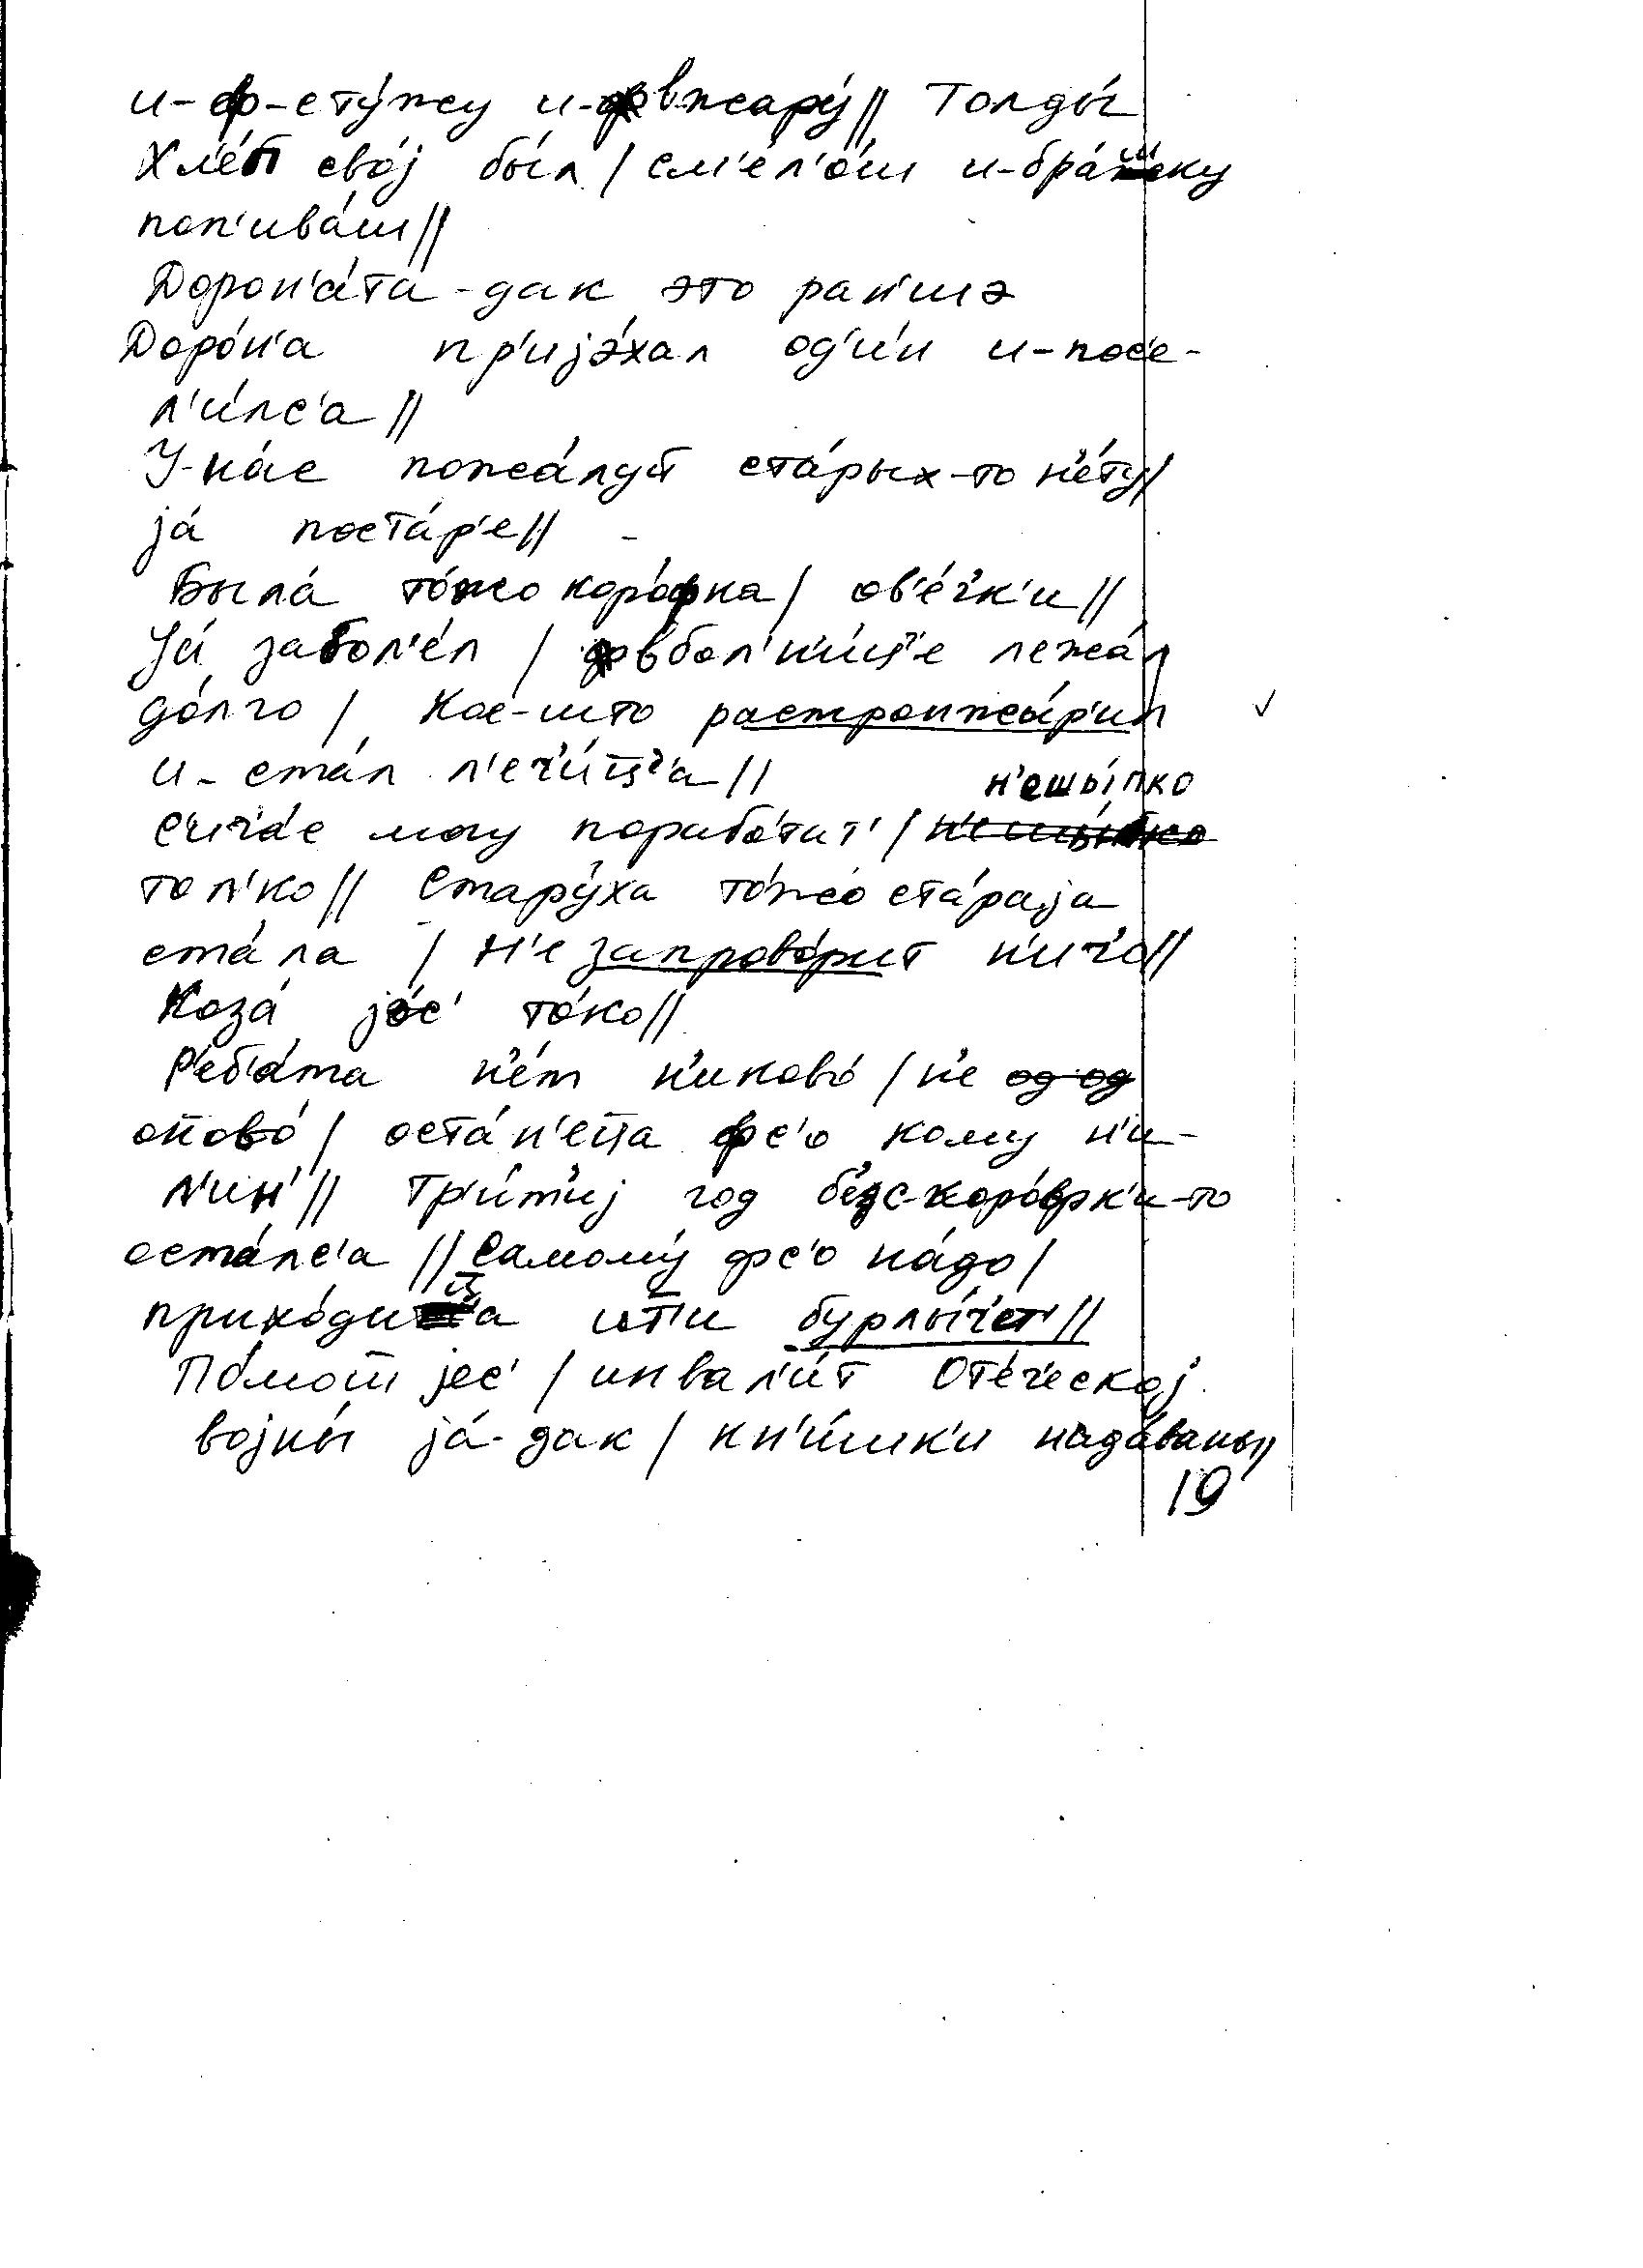 и-ф-сту́жу и-вжару́// Толды́
Хл'е́п сво́j бы́л / см'е́л'ош и-бра́шку
поп'ива́ш//
Дорон'а́та-дак это ран'шэ
Доро́н'а пр'иjэ́хал од'и́н и-пос'е-
л'и́лс'а //
У-на́с пожа́луй ста́рых-то н'е́ту/
jа́ поста́р'е//
Была́ то́жо коро́фка / ов'е́ч'к'и//
Jа́ забол'е́л / вбол'н'и́ц'е лежа́л
до́лго / кое́-што растронжы́р'ил
и-ста́л л'еч'и́ц'а //
с'ич'а́с могу порабо́тат' / н'ешы́пко
тол'ко// Стару́ха то́жо ста́раjа
ста́ла / Н'е запрово́рит н'ич'о//
Коза́ jес' то́ко//
Р'еб'а́та н'е́т н'иково́ / н'е од од
оново́ / оста́н'еца фс'о кому н'и-
л'ин'// Тр'и́т'иj год б'ес-коро́фк'и-то
оста́лс'а // Самому́ фс'о на́до /
прихо́дица ити бурлы́ч'ет'//
По́мош jес' / инвал'и́т От'е́ч'ескоj
воjны́ jа́-дак / кн'и́шк'и нада́ваны//
19